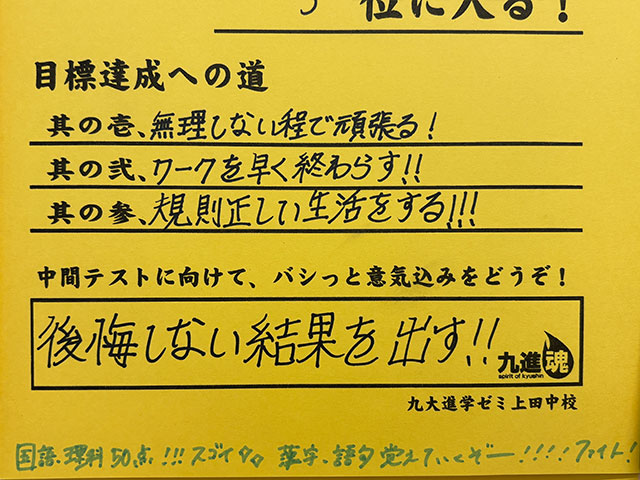 位に入る!
目標達成への道
其の壱、無理しない程で頑張る!
其の弐、ワークを早く終わらす!!
其の参、規則正しい生活をする!!!
中間テストに向けて、バシっと意気込みをどうぞ!
後悔しない結果を出す!!
九進魂
spirit of kyushin
九大進学ゼミ上田中校
国語、理科50点!!!スゴイ 漢字、語句覚えていくぞー!!!!ファイト!